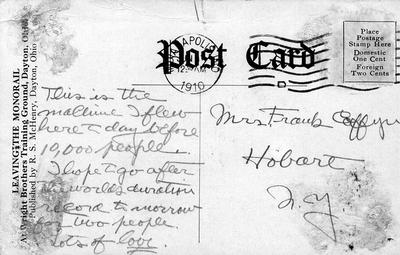 LEAVING THE MONORAIL
At Wright Brothers Training Ground, Dayton, Ohio
Published by R. S. McHenry, Dayton, Ohio
Post Card
APOLIS
1910
Place
Postage
Stamp Here
Domestic
One Cent
Foreign
Two Cents
This is the
machine I flew
here to day before
19,000 people.
I hope to go after
the worlds duration
record tomorrow
for two people.
Lots of love.
Mrs Frank
Hobart
N. Y